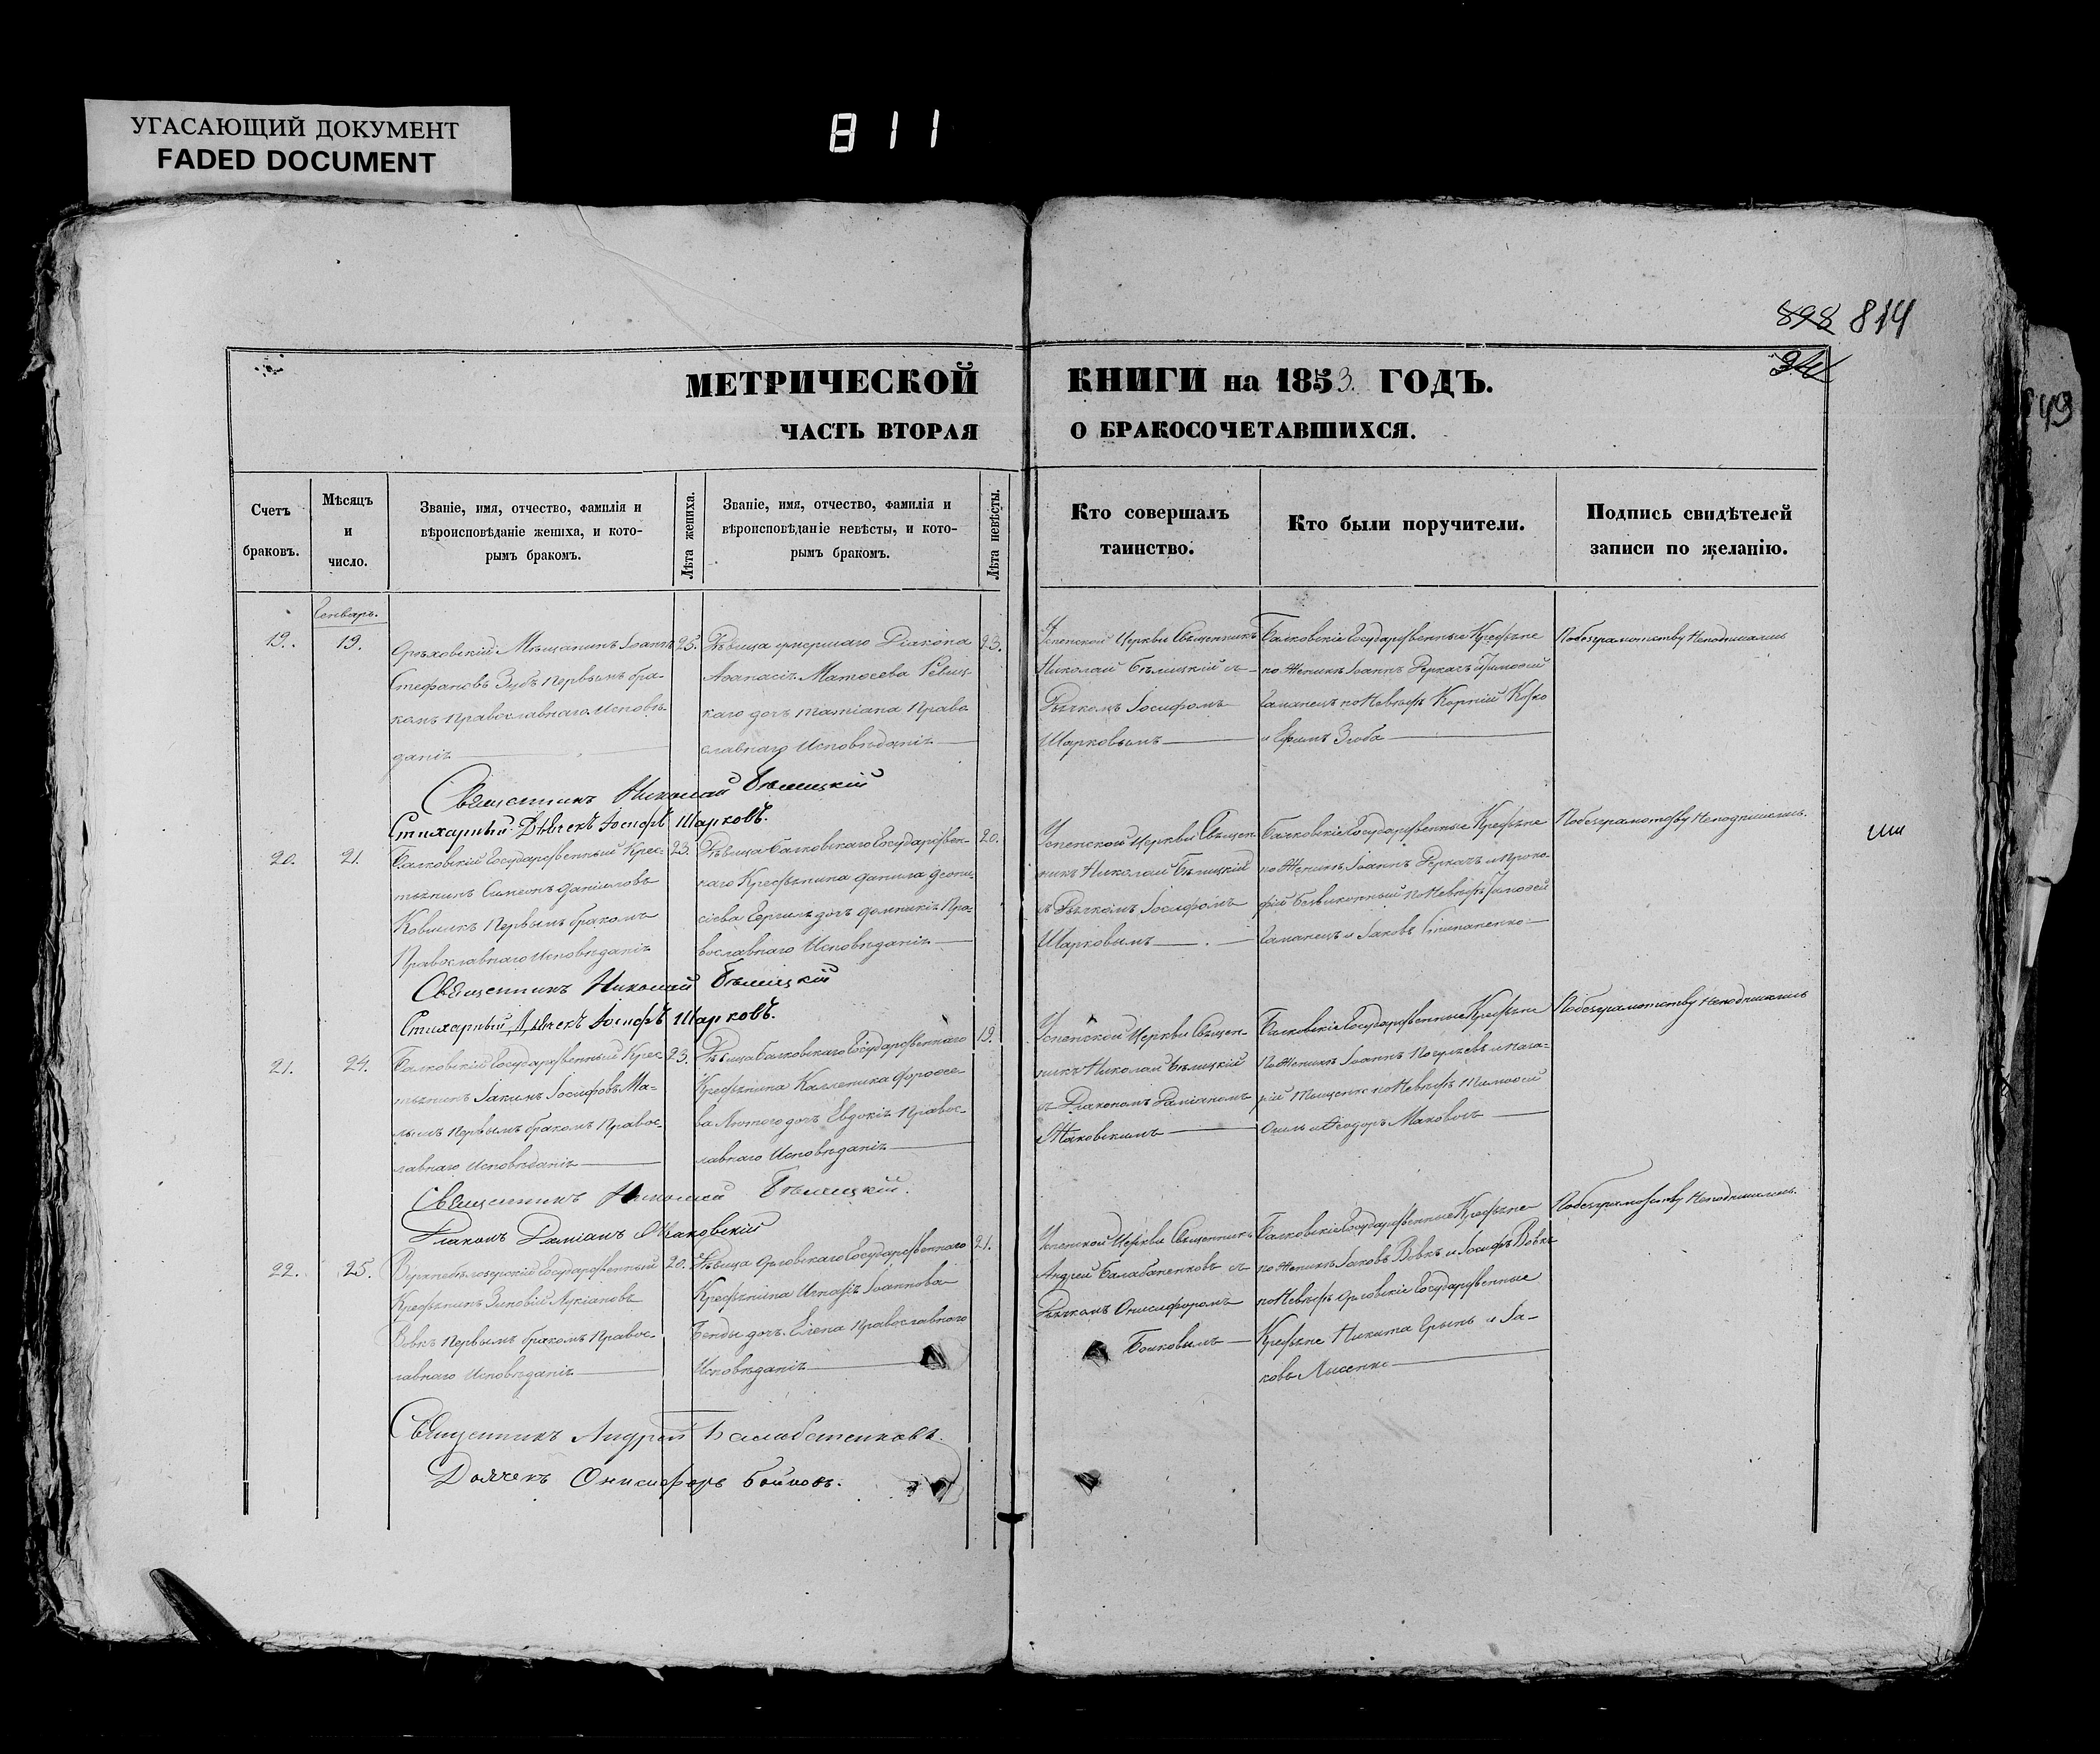 УГАСАЮЩИЙ ДОКУМЕНТ
FADED DOCUMENT
811
898 814
МЕТРИЧЕСКОЙ КНИГИ на 1853. ГОДЪ.
ЧАСТЬ ВТОРАЯ О БРАКОСОЧЕТАВШИХСЯ.
Счетъ браковъ.
Мѣсяцъ и число.
Званіе, имя, отчество, фамилія и
вѣроисповѣданіе жениха, и кото-
рымъ бракомъ.
Лѣта жениха.
Званіе, имя, отчество, фамилія и
вѣроисповѣданіе невѣсты, и кото-
рымъ бракомъ.
Лѣта невѣсты.
Кто совершалъ
таинство.
Кто были поручители.
Подпись свидѣтелей
записи по желанію.
Генварь.
19. 19.
Орѣховскій Мѣщанинъ Іоаннъ
Стефановъ Зубъ первымъ бра-
комъ православнаго исповѣ-
даніѣ
25.
Дѣвица умершаго Діакона
Аѳанасіѣ Матѳеева Ревиц-
каго дочь Татіана право
славнаго исповѣданіѣ
23.
Успенской Церкви Священникъ
Николай Бѣлицкій съ
Дьячкомъ Іосифомъ
Шарковымъ
Балковскіе Государственные Крестьяне
по Женихѣ Іоаннъ Деркачъ и Тимоѳей
Гаманецъ по Невѣстѣ Корній
и Ефимъ Зюба
По безграмотству неподписались
Священникъ Николай Бѣлицкій
Стихарный Дьячекъ Іосифъ Шарковъ.
20. 21.
Балковскій Государственный Крес-
тьянинъ Симеонъ Даніиловъ
Ковшикъ первымъ бракомъ
Православнаго исповѣданіѣ
23.
Дѣвица Балковскаго Государствен-
наго Крестьянина Данила Деони-
сіева дочь Домникіѣ Пра-
вославнаго исповѣданіѣ
20.
Успенской Церкви Священ-
никъ Николай Бѣлицкій
съ Дьячкомъ Іосифомъ
Шарковымъ
Балковскіе Государственные Крестьяне
по Женихѣ Іоаннъ Деркачъ и Проко-
фій по Невѣстѣ Тимоѳей
Гаманецъ и Іаковъ Стипаненко
По безграмотству неподписались.
Священникъ Николай Бѣлицкій
Стихарный Дьячекъ Іосифъ Шарковъ.
21. 24.
Балковскій Государственный Крес-
тьянинъ Іакимъ Іосифовъ Ма-
лышъ первымъ бракомъ правос-
лавнаго исповѣданіѣ
23.
Дѣвица Балковскаго Государственнаго
Крестьянина Каленика Дороѳее-
ва Лютого дочь Евдокіѣ правос-
лавнаго исповѣданіѣ
19.
Успенской Церкви Священ-
никъ Николай Бѣлицкій
съ Діакономъ Даміаномъ
Маковскимъ
Балковскіе Государственные Крестьяне
по Женихѣ Іоаннъ и Наза-
рій Тищенко по Невѣстѣ Тимоѳей
и Ѳеодоръ
По безграмотству неподписались
Священникъ Николай Бѣлицкій.
Діаконъ Даміанъ Маковскій
22. 25.
Верхнебѣлозерскій Государственный
Крестьянинъ Зиновій Лукіановъ
Вовкъ первымъ бракомъ правос-
лавнаго исповѣданіѣ
20.
Дѣвица Орловскаго Государственнаго
Крестьянина Игнатіѣ Іоаннова
Бенды дочь Елена православнаго
исповѣданіѣ
21.
Успенской Церкви Священникъ
Андрей Балабаненковъ съ
Дьячкомъ Онисифоромъ
Бойковымъ
Балковскіе Государственные Крестьяне
по Женихѣ Іаковъ Вовкъ и Іосифъ Вовкъ
по Невѣстѣ Орловскіе Государственные
Крестьяне Никита Грынь и Іа-
ковъ Лысенко
По безграмотству неподписались.
Священникъ Андрей Балабаненковъ.
Дьячекъ Онисифоръ Бойковъ.